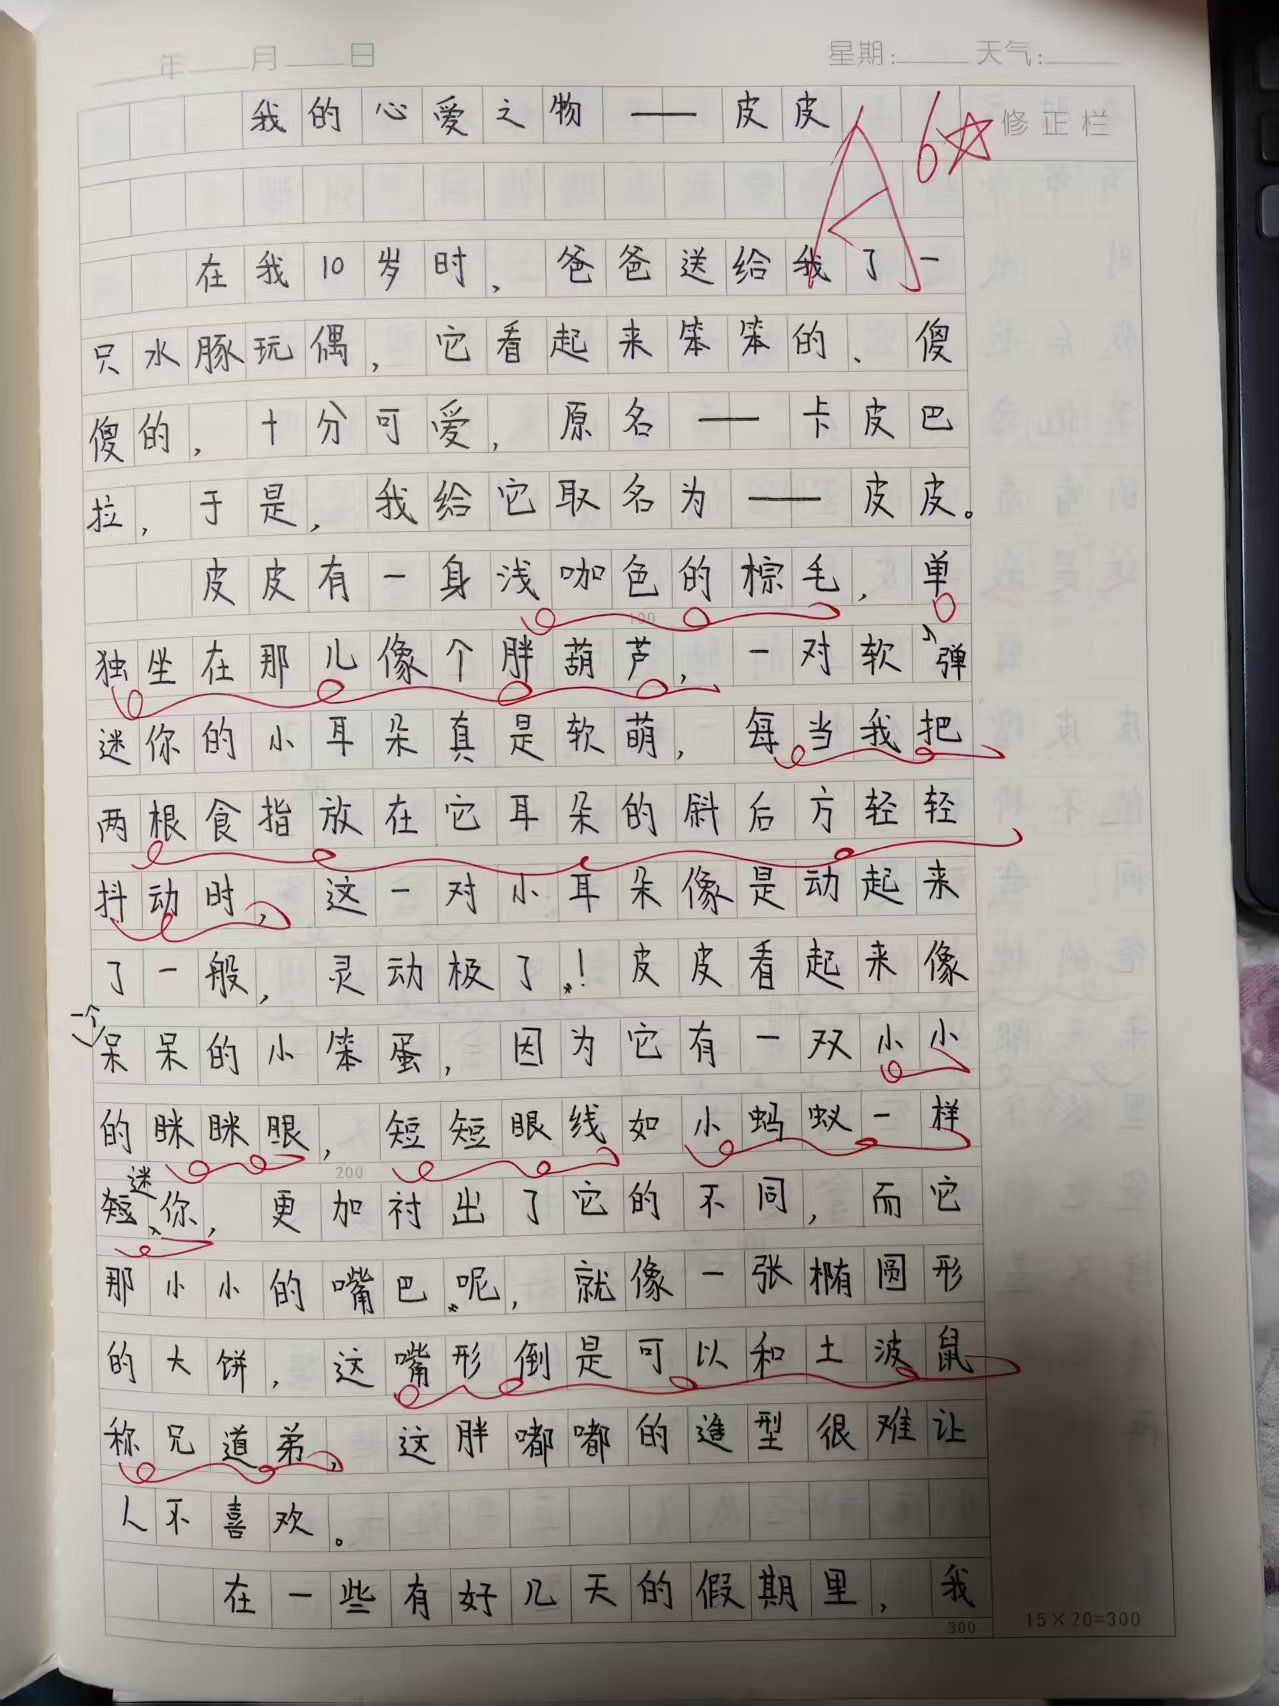 年 月 日 星期: 天气:
我的心爱之物——皮皮
A 6☆
修正栏
在我10岁时，爸爸送给我了一
只水豚玩偶，它看起来笨笨的、傻
傻的，十分可爱，原名——卡皮巴
拉，于是，我给它取名为——皮皮。
皮皮有一身浅咖色的棕毛，单
100
独坐在那儿像个胖葫芦，一对软弹
迷你的小耳朵真是软萌，每当我把
两根食指放在它耳朵的斜后方轻轻
抖动时，这一对小耳朵像是动起来
了一般，灵动极了！皮皮看起来像
一个呆呆的小笨蛋，因为它有一双小小
的眯眯眼，短短眼线如小蚂蚁一样
200
短迷你，更加衬出了它的不同，而它
那小小的嘴巴呢，就像一张椭圆形
的大饼，这嘴形倒是可以和土波鼠
称兄道弟，这胖嘟嘟的造型很难让
人不喜欢。
在一些有好几天的假期里，我
300
15×20=300